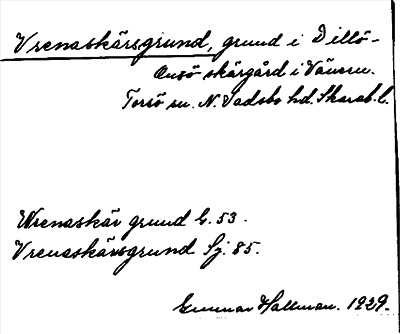 Vrenaskärsgrund, grund i Dillö-
Onsö skärgård i Vänern.
Torsö sn. N. Vadsbo hd. Skarab. l.
Wrenaskär grund G. 53.
Vrenaskärsgrund Sj. 85.
Gunnar Hallman. 1929.